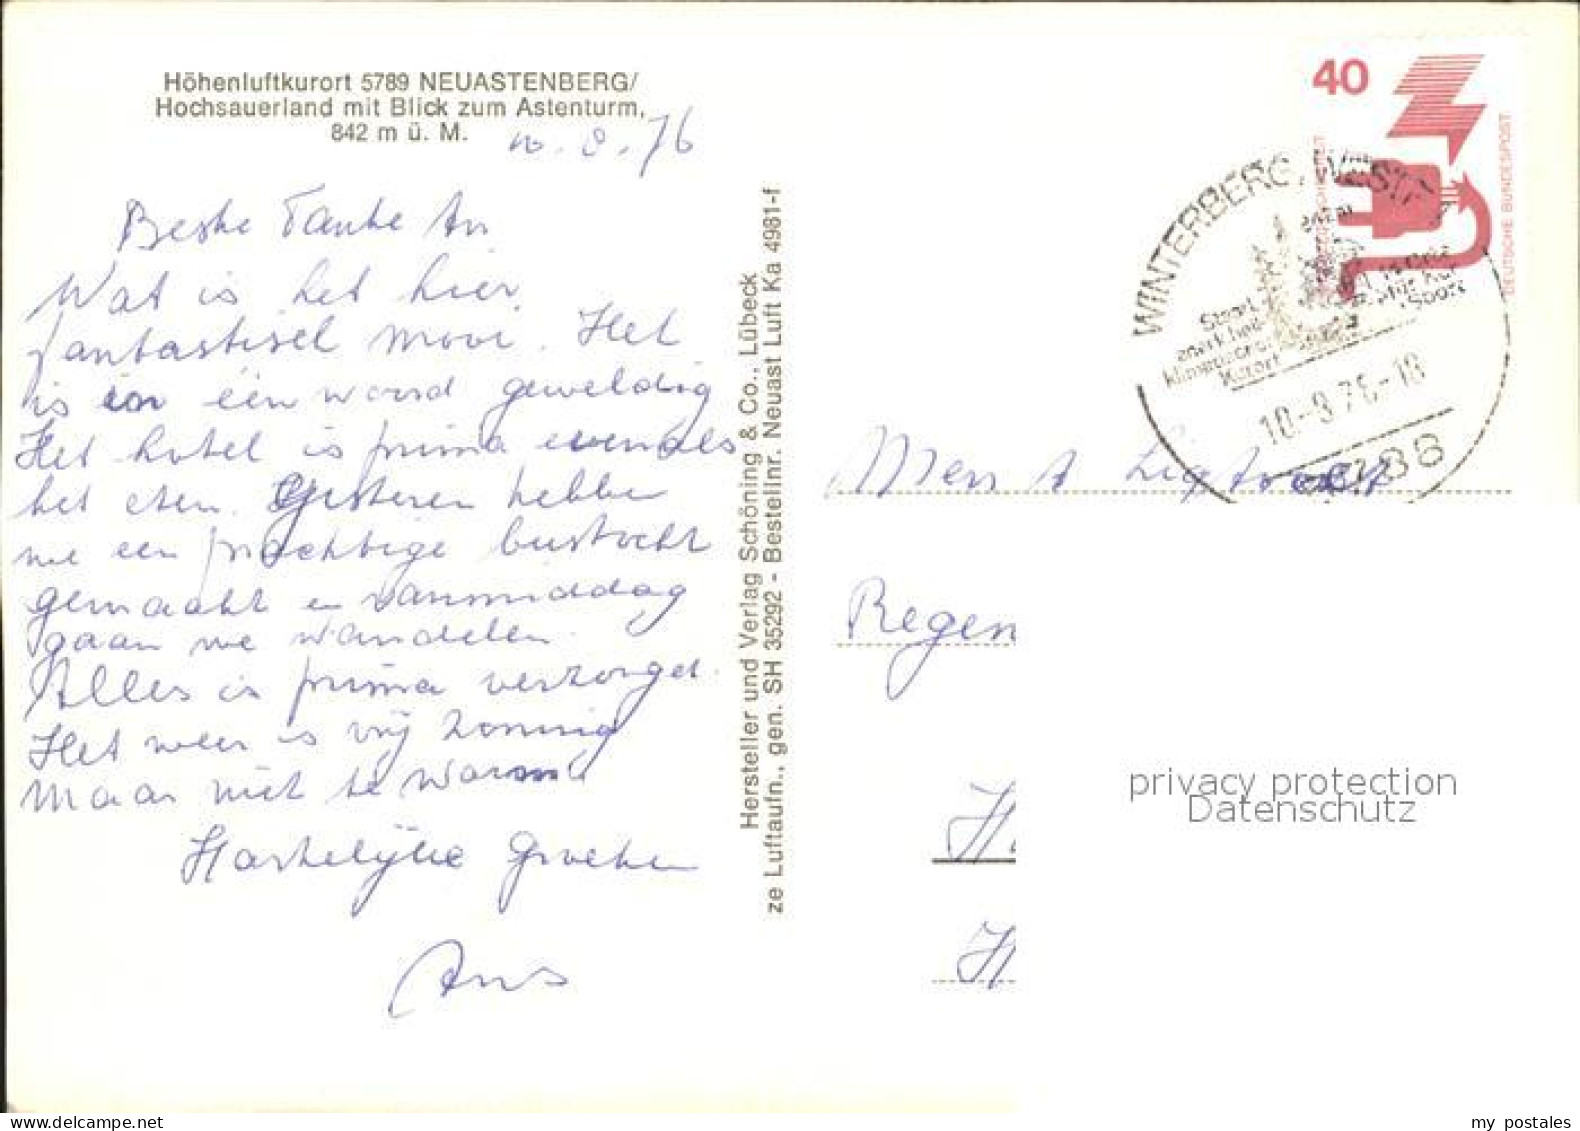 Höhenluftkurort 5789 NEUASTENBERG/
Hochsauerland mit Blick zum Astenturm,
842 m ü. M.
10.8.76
Beste Tante An
Wat is het hier
fantastisch mooi. Het
is in één woord geweldig
Het hotel is prima evenals
het eten. Gisteren hebben
we een prachtige bustocht
gemaakt en vanmiddag
gaan we wandelen.
Alles is prima verzorgd.
Het weer is vrij zonnig
Maar niet te warm
Hartelijke Groeten
Ans
Hersteller und Verlag Schöning & Co., Lübeck
ze Luftaufn., gen. SH 35292 - Bestellnr. Neuast Luft Ka 4981-f
40
DEUTSCHE BUNDESPOST
WINTERBERG, WESTF
Kurort
Sport
10-8.76-18
Regen
privacy protection
Datenschutz
my postales